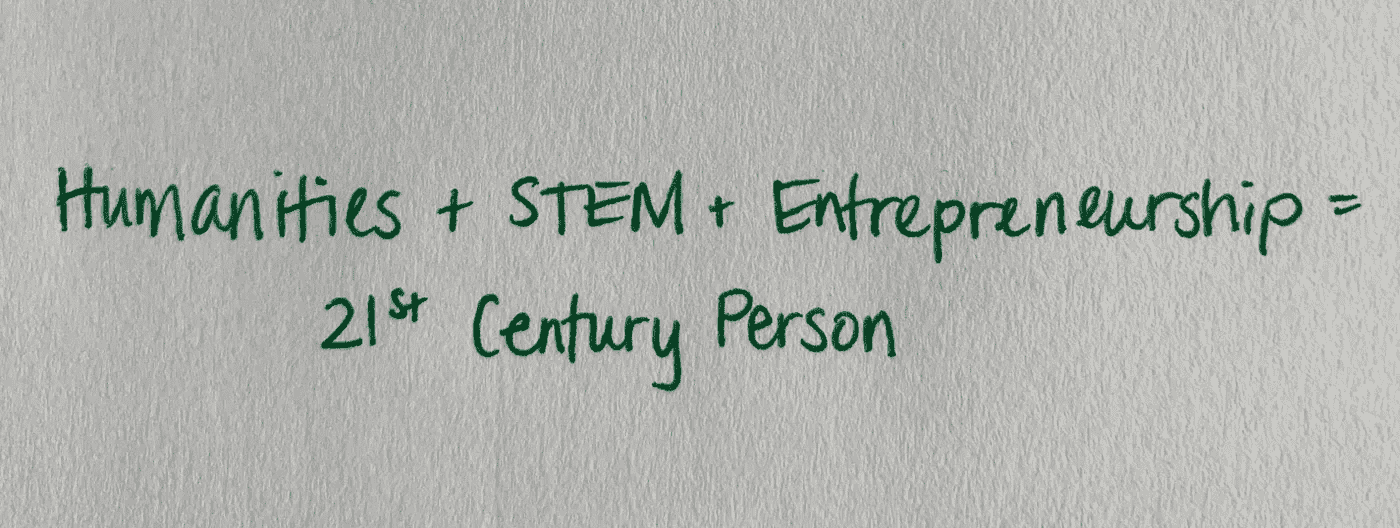 Humanities + STEM + Entrepreneurship =
21st Century Person